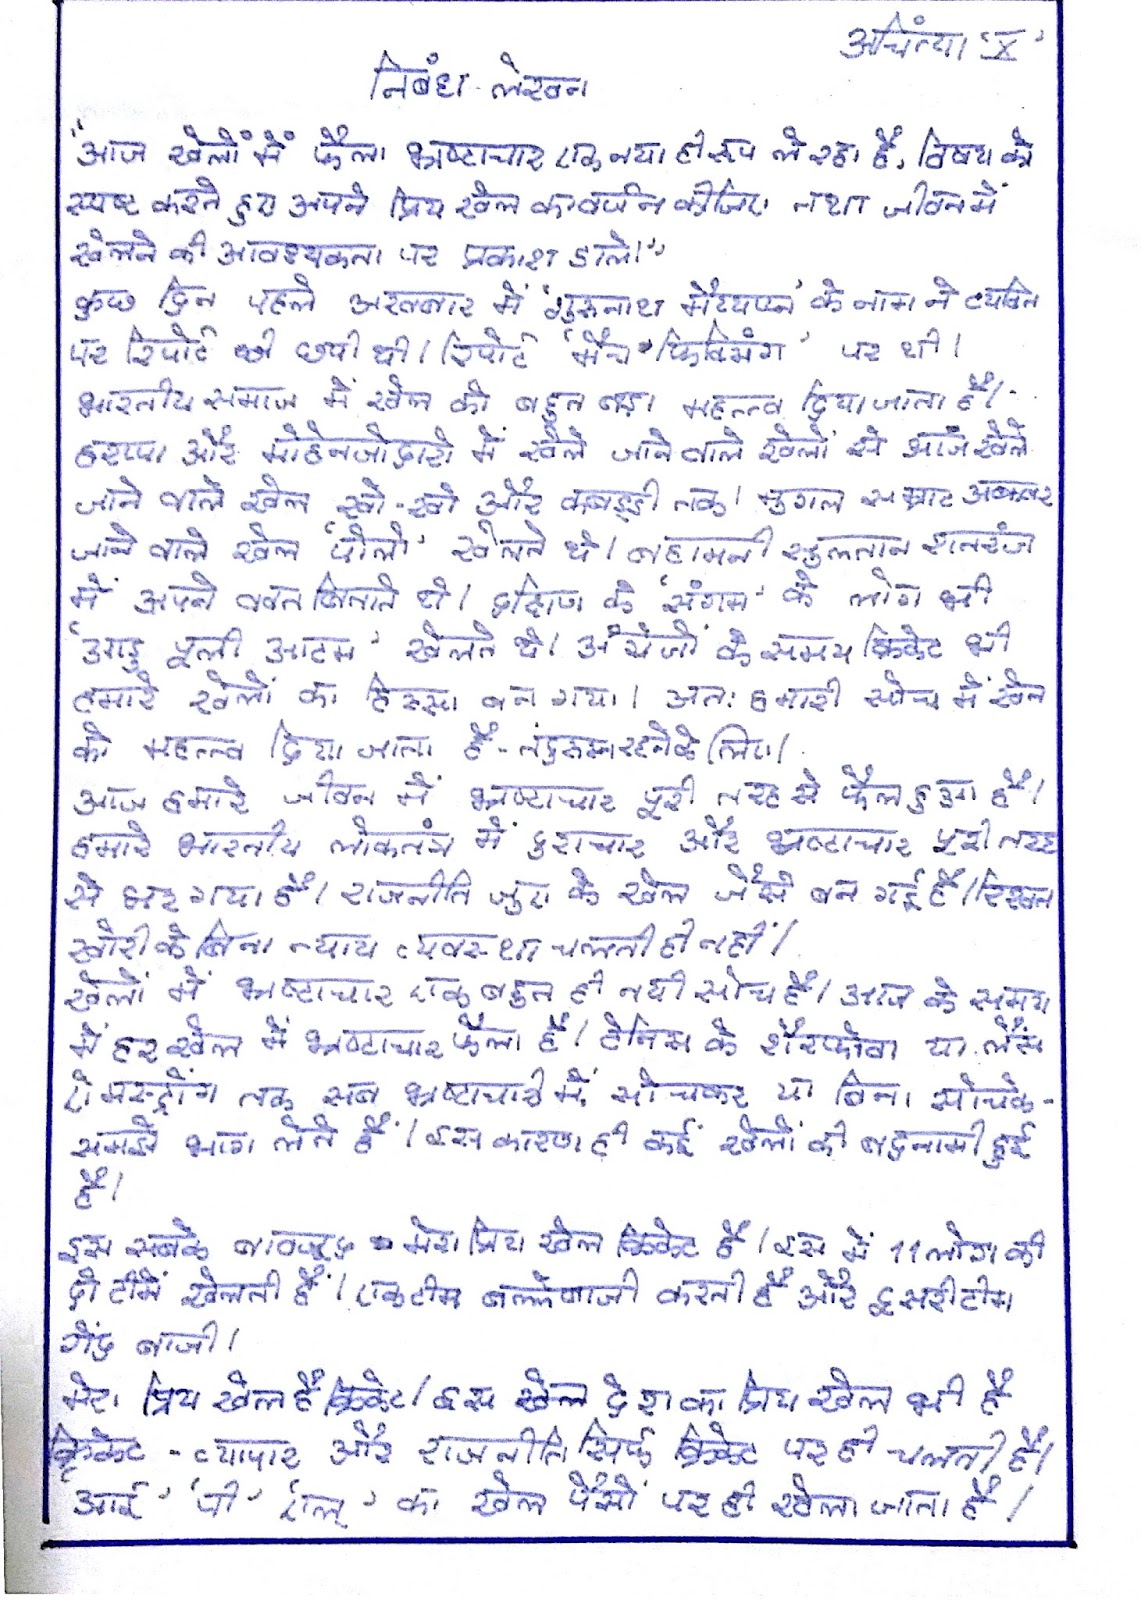 अचिंत्या 'X'
निबंध लेखन
"आज खेलों में फैला भ्रष्टाचार एक नया ही रूप ले रहा है, विषय को
स्पष्ट करते हुए अपने प्रिय खेल का वर्णन कीजिए तथा जीवन में
खेलने की आवश्यकता पर प्रकाश डाले।"
कुछ दिन पहले अखबार में 'गुरुनाथ मैय्यप्पन' के नाम ने व्यक्ति
पर रिपोर्ट छपी थी। रिपोर्ट 'मैच फिक्सिंग' पर थी।
भारतीय समाज में खेल को बहुत बड़ा महत्त्व दिया जाता है।-
हरप्पा और मोहेनजोद्वारो में खेले जाने वाले खेलों से आज खेले
जाने वाले खेल खो-खो और कबड्डी तक। मुगल सम्राट अकबर
जाने वाले खेल 'पोलो' खेलते थे। बहामनी सुलतान शतरंज
में अपने वक्त बिताते थे। दक्षिण के 'संगम' के लोग भी
'आडु पूली आटम' खेलते थे। अंग्रेजों के समय क्रिकेट भी
हमारे खेलों का हिस्सा बन गया। अतः हमारी सोच में खेल
को महत्त्व दिया जाता है - तंदुरुस्त रहने के लिए।
आज हमारे जीवन में भ्रष्टाचार पूरी तरह से फैल हुआ है।
हमारे भारतीय लोकतंत्र में दुराचार और भ्रष्टाचार पूरी तरह
से भर गया है। राजनीति जुए के खेल जैसे बन गई है। रिश्वत
खोरी के बिना न्याय व्यवस्था चलती ही नहीं।
खेलों में भ्रष्टाचार एक बहुत ही नयी सोच है। आज के समय
में हर खेल में भ्रष्टाचार फैला है। टेनिस के शैरफोवा या लैंस
एमस्ट्रोंग तक सब भ्रष्टाचारी में, सोचकर या बिना सोचेक-
समझे भाग लेते हैं। इस कारण ही कई खेलों की बदनामी हुई
है।
इस सबके बावजूद मेरा प्रिय खेल क्रिकेट है। इस में 11 लोग की
दो टीमें खेलती हैं। एक टीम बल्लेबाजी करती है और दूसरी टीम
गेंद बाजी।
मेरा प्रिय खेल है क्रिकेट। इस खेल देश का प्रिय खेल भी है
क्रिकेट - व्यापार और राजनीति सिर्फ क्रिकेट पर ही चलती है।
'आई' 'पी' 'एल्' का खेल पैसों पर ही खेला जाता है।